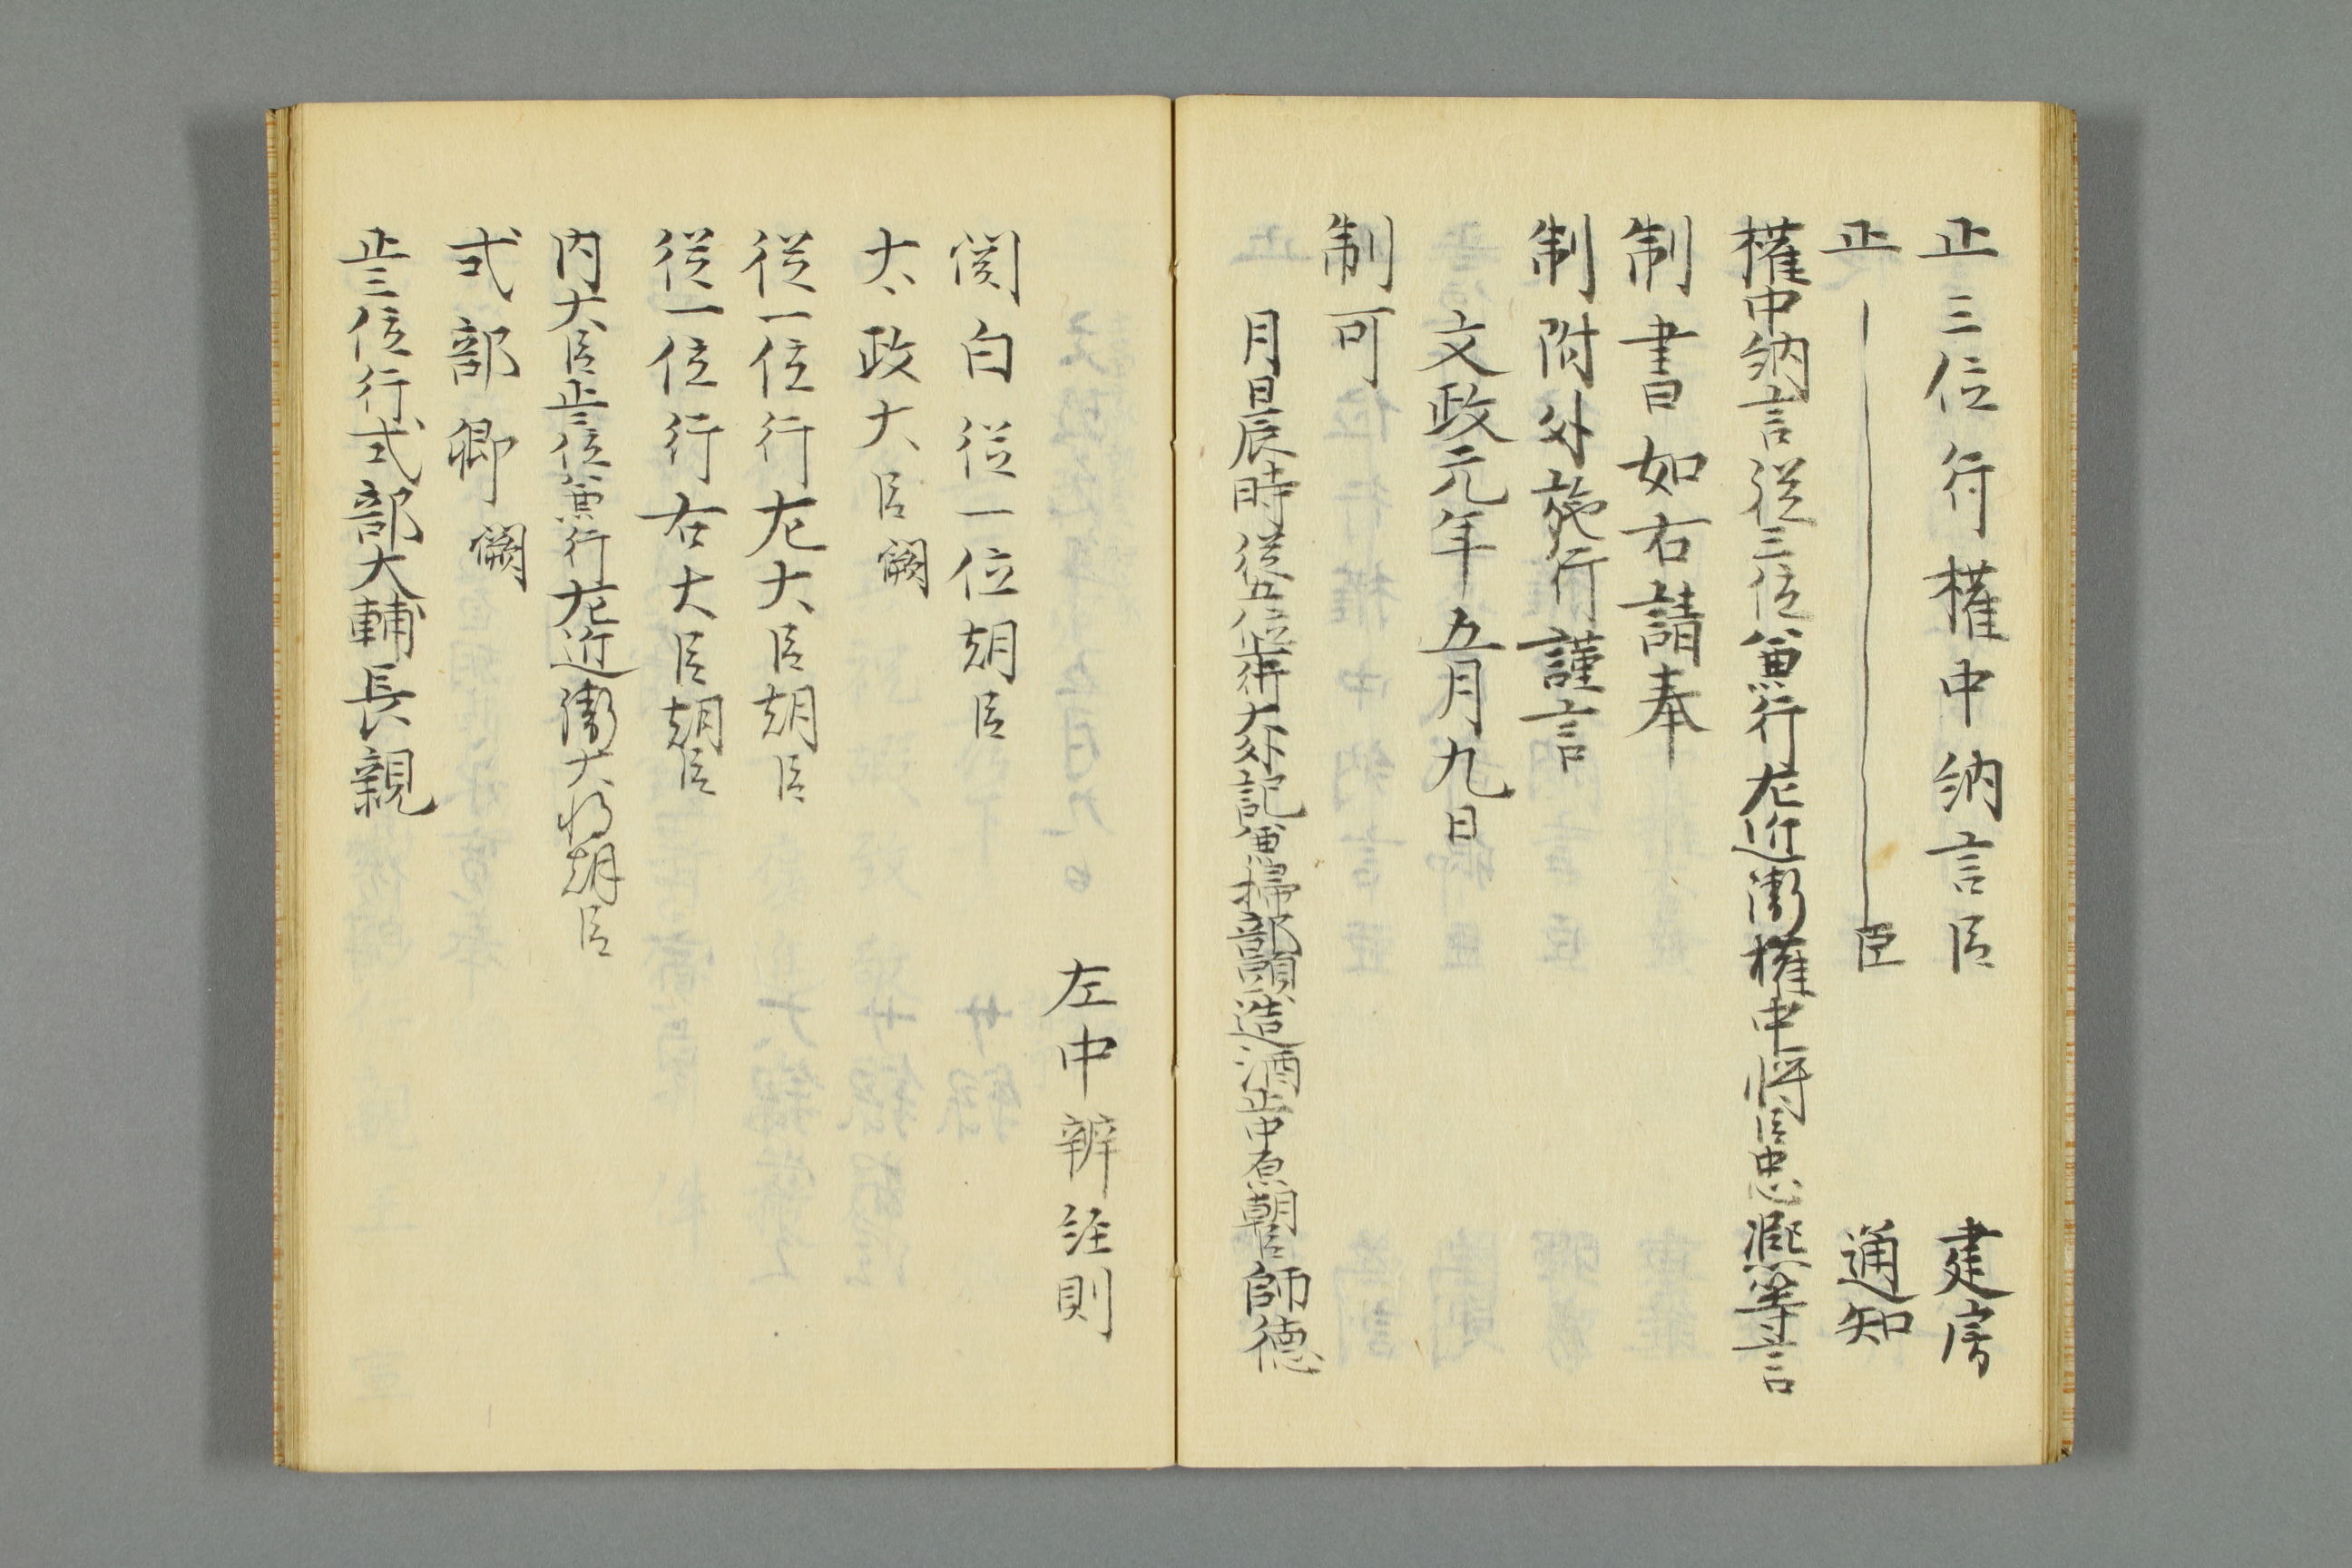 正三位行權中納言臣 建房
正————————臣 通知
權中納言從三位兼行左近衛權中將臣忠凞等言
制書如右請奉
制附外施行謹言
文政元年五月九日
制可
月日辰時從五位上行大外記兼掃部頭造酒正中原朝臣師德
左中辨經則
関白從一位朝臣
太政大臣闕
從一位行左大臣朝臣
從一位行右大臣朝臣
内大臣正二位兼行左近衛大将朝臣
式部卿闕
正三位行式部大輔長親